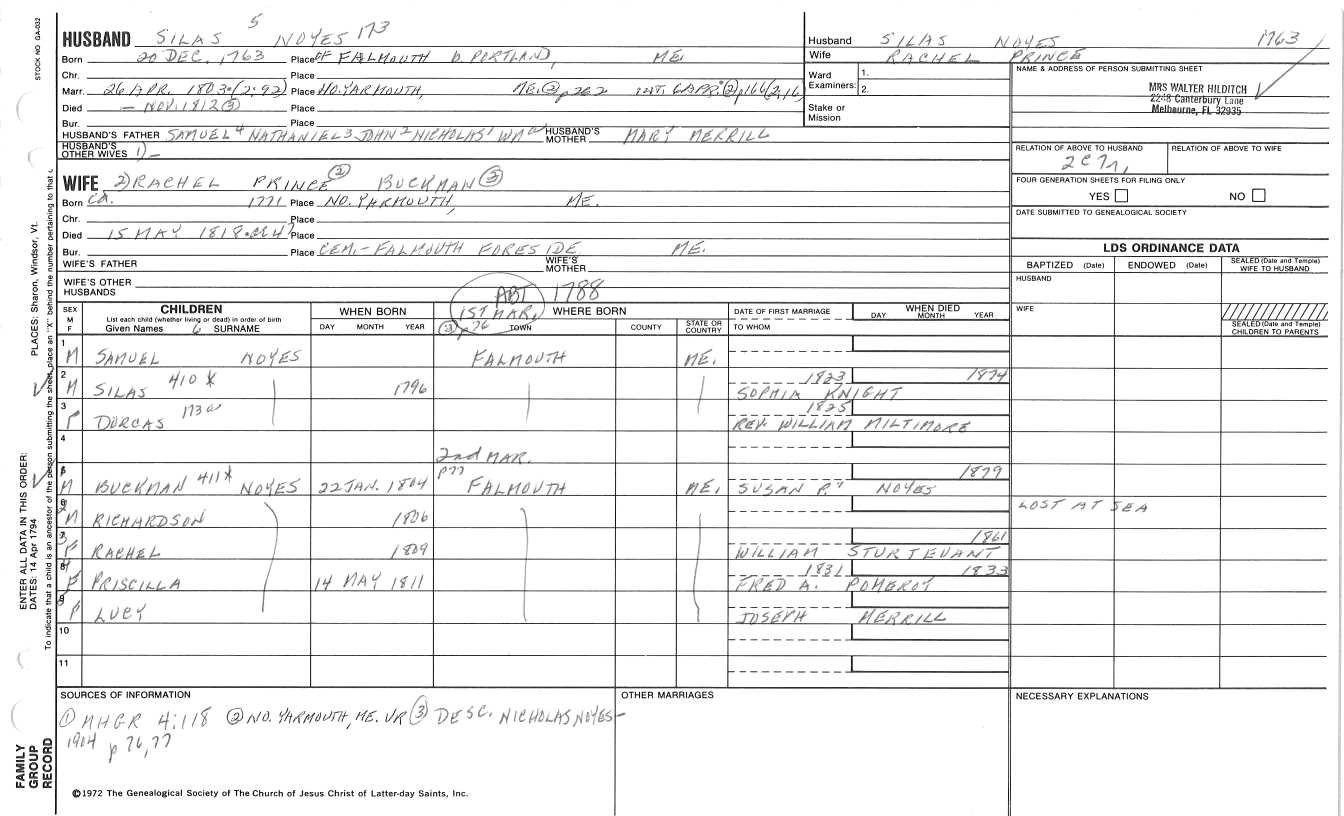 STOCK NO GA-032
HUSBAND SILAS 5 NOYES 173
Born 20 DEC. 1763 Place OF FALMOUTH D. PORTLAND, ME.
Chr. Place
Marr. 26 APR. 1803 (2:92) Place NO. YARMOUTH, ME. ② p262 INT. 6 APR. ② p166 (2:16
Died — NOV. 1812 ③ Place
Bur. Place
HUSBAND'S FATHER SAMUEL 4 NATHANIEL 3 JOHN 2 NICHOLAS 1 WM a HUSBAND'S MOTHER MARY MERRILL
HUSBAND'S OTHER WIVES 1) —
WIFE 2) RACHEL PRINCE ② BUCKMAN ③
Born CA. 1771 Place NO. YARMOUTH, ME.
Chr. Place
Died 15 MAY 1818 Place
Bur. Place CEM. - FALMOUTH FORESIDE ME.
WIFE'S FATHER WIFE'S MOTHER
WIFE'S OTHER HUSBANDS
Husband SILAS NOYES 1763
Wife RACHEL PRINCE
Ward Examiners: 1. 2.
Stake or Mission
NAME & ADDRESS OF PERSON SUBMITTING SHEET
MRS WALTER HILDITCH
2248 Canterbury Lane
Melbourne, FL 32935
RELATION OF ABOVE TO HUSBAND RELATION OF ABOVE TO WIFE
2C7r,
FOUR GENERATION SHEETS FOR FILING ONLY
YES NO
DATE SUBMITTED TO GENEALOGICAL SOCIETY
LDS ORDINANCE DATA
BAPTIZED (Date) ENDOWED (Date) SEALED (Date and Temple) WIFE TO HUSBAND
HUSBAND
WIFE
SEALED (Date and Temple) CHILDREN TO PARENTS
ABT 1788
1ST MAR.
③ p76
SEX M F CHILDREN List each child (whether living or dead) in order of birth Given Names 6 SURNAME WHEN BORN DAY MONTH YEAR WHERE BORN TOWN COUNTY STATE OR COUNTRY DATE OF FIRST MARRIAGE TO WHOM WHEN DIED DAY MONTH YEAR
1 M SAMUEL NOYES FALMOUTH ME.
2 M SILAS 410 X 1796 1823 SOPHIA KNIGHT 1874
3 F DORCAS 173a 1825 REV. WILLIAM MILTIMORE
4
2nd MAR.
p77
5 M BUCKMAN 411X NOYES 22 JAN. 1804 FALMOUTH ME. SUSAN P. 7 NOYES 1879
2 M RICHARDSON 1806 LOST AT SEA
3 F RACHEL 1809 WILLIAM STURTEVANT 1861
8 F PRISCILLA 14 MAY 1811 1831 FRED A. POMEROY 1833
9 F LUCY JOSEPH MERRILL
10
11
SOURCES OF INFORMATION
① MHGR 4:118 ② NO. YARMOUTH, ME. VR ③ DESC. NICHOLAS NOYES —
1904 p 76, 77
OTHER MARRIAGES
NECESSARY EXPLANATIONS
©1972 The Genealogical Society of The Church of Jesus Christ of Latter-day Saints, Inc.
FAMILY GROUP RECORD
ENTER ALL DATA IN THIS ORDER:
DATES: 14 Apr 1794
PLACES: Sharon, Windsor, Vt.
To indicate that a child is an ancestor of the person submitting the sheet, place an "X" behind the number pertaining to that